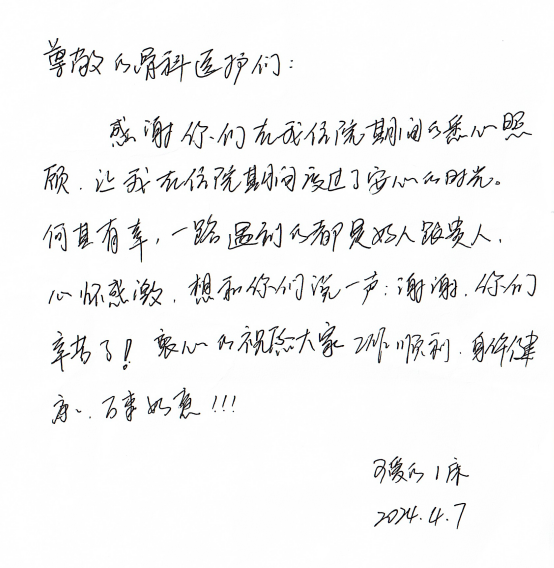 尊敬的骨科医护们：
感谢你们在我住院期间的悉心照
顾，让我在住院期间度过了安心的时光。
何其有幸，一路遇到的都是好人跟贵人，
心怀感激，想和你们说一声：谢谢，你们
辛苦了！衷心的祝愿大家工作顺利，身体健
康、万事如意！！！
可爱的1床
2024.4.7